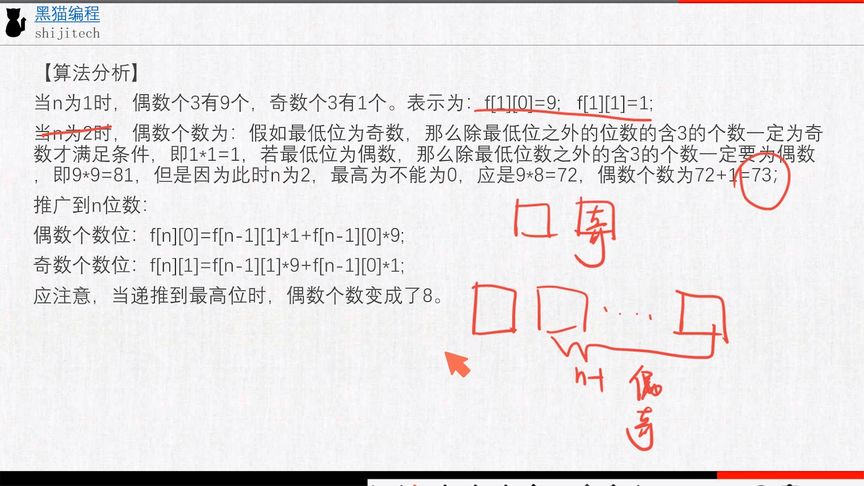 黑猫编程
shijitech
【算法分析】
当n为1时，偶数个3有9个，奇数个3有1个。表示为：f[1][0]=9; f[1][1]=1;
当n为2时，偶数个数为：假如最低位为奇数，那么除最低位之外的位数的含3的个数一定为奇
数才满足条件，即1*1=1，若最低位为偶数，那么除最低位数之外的含3的个数一定要为偶数
，即9*9=81，但是因为此时n为2，最高为不能为0，应是9*8=72，偶数个数为72+1=73;
推广到n位数：
偶数个数位：f[n][0]=f[n-1][1]*1+f[n-1][0]*9;
奇数个数位：f[n][1]=f[n-1][1]*9+f[n-1][0]*1;
应注意，当递推到最高位时，偶数个数变成了8。
奇
n-1
偶
奇